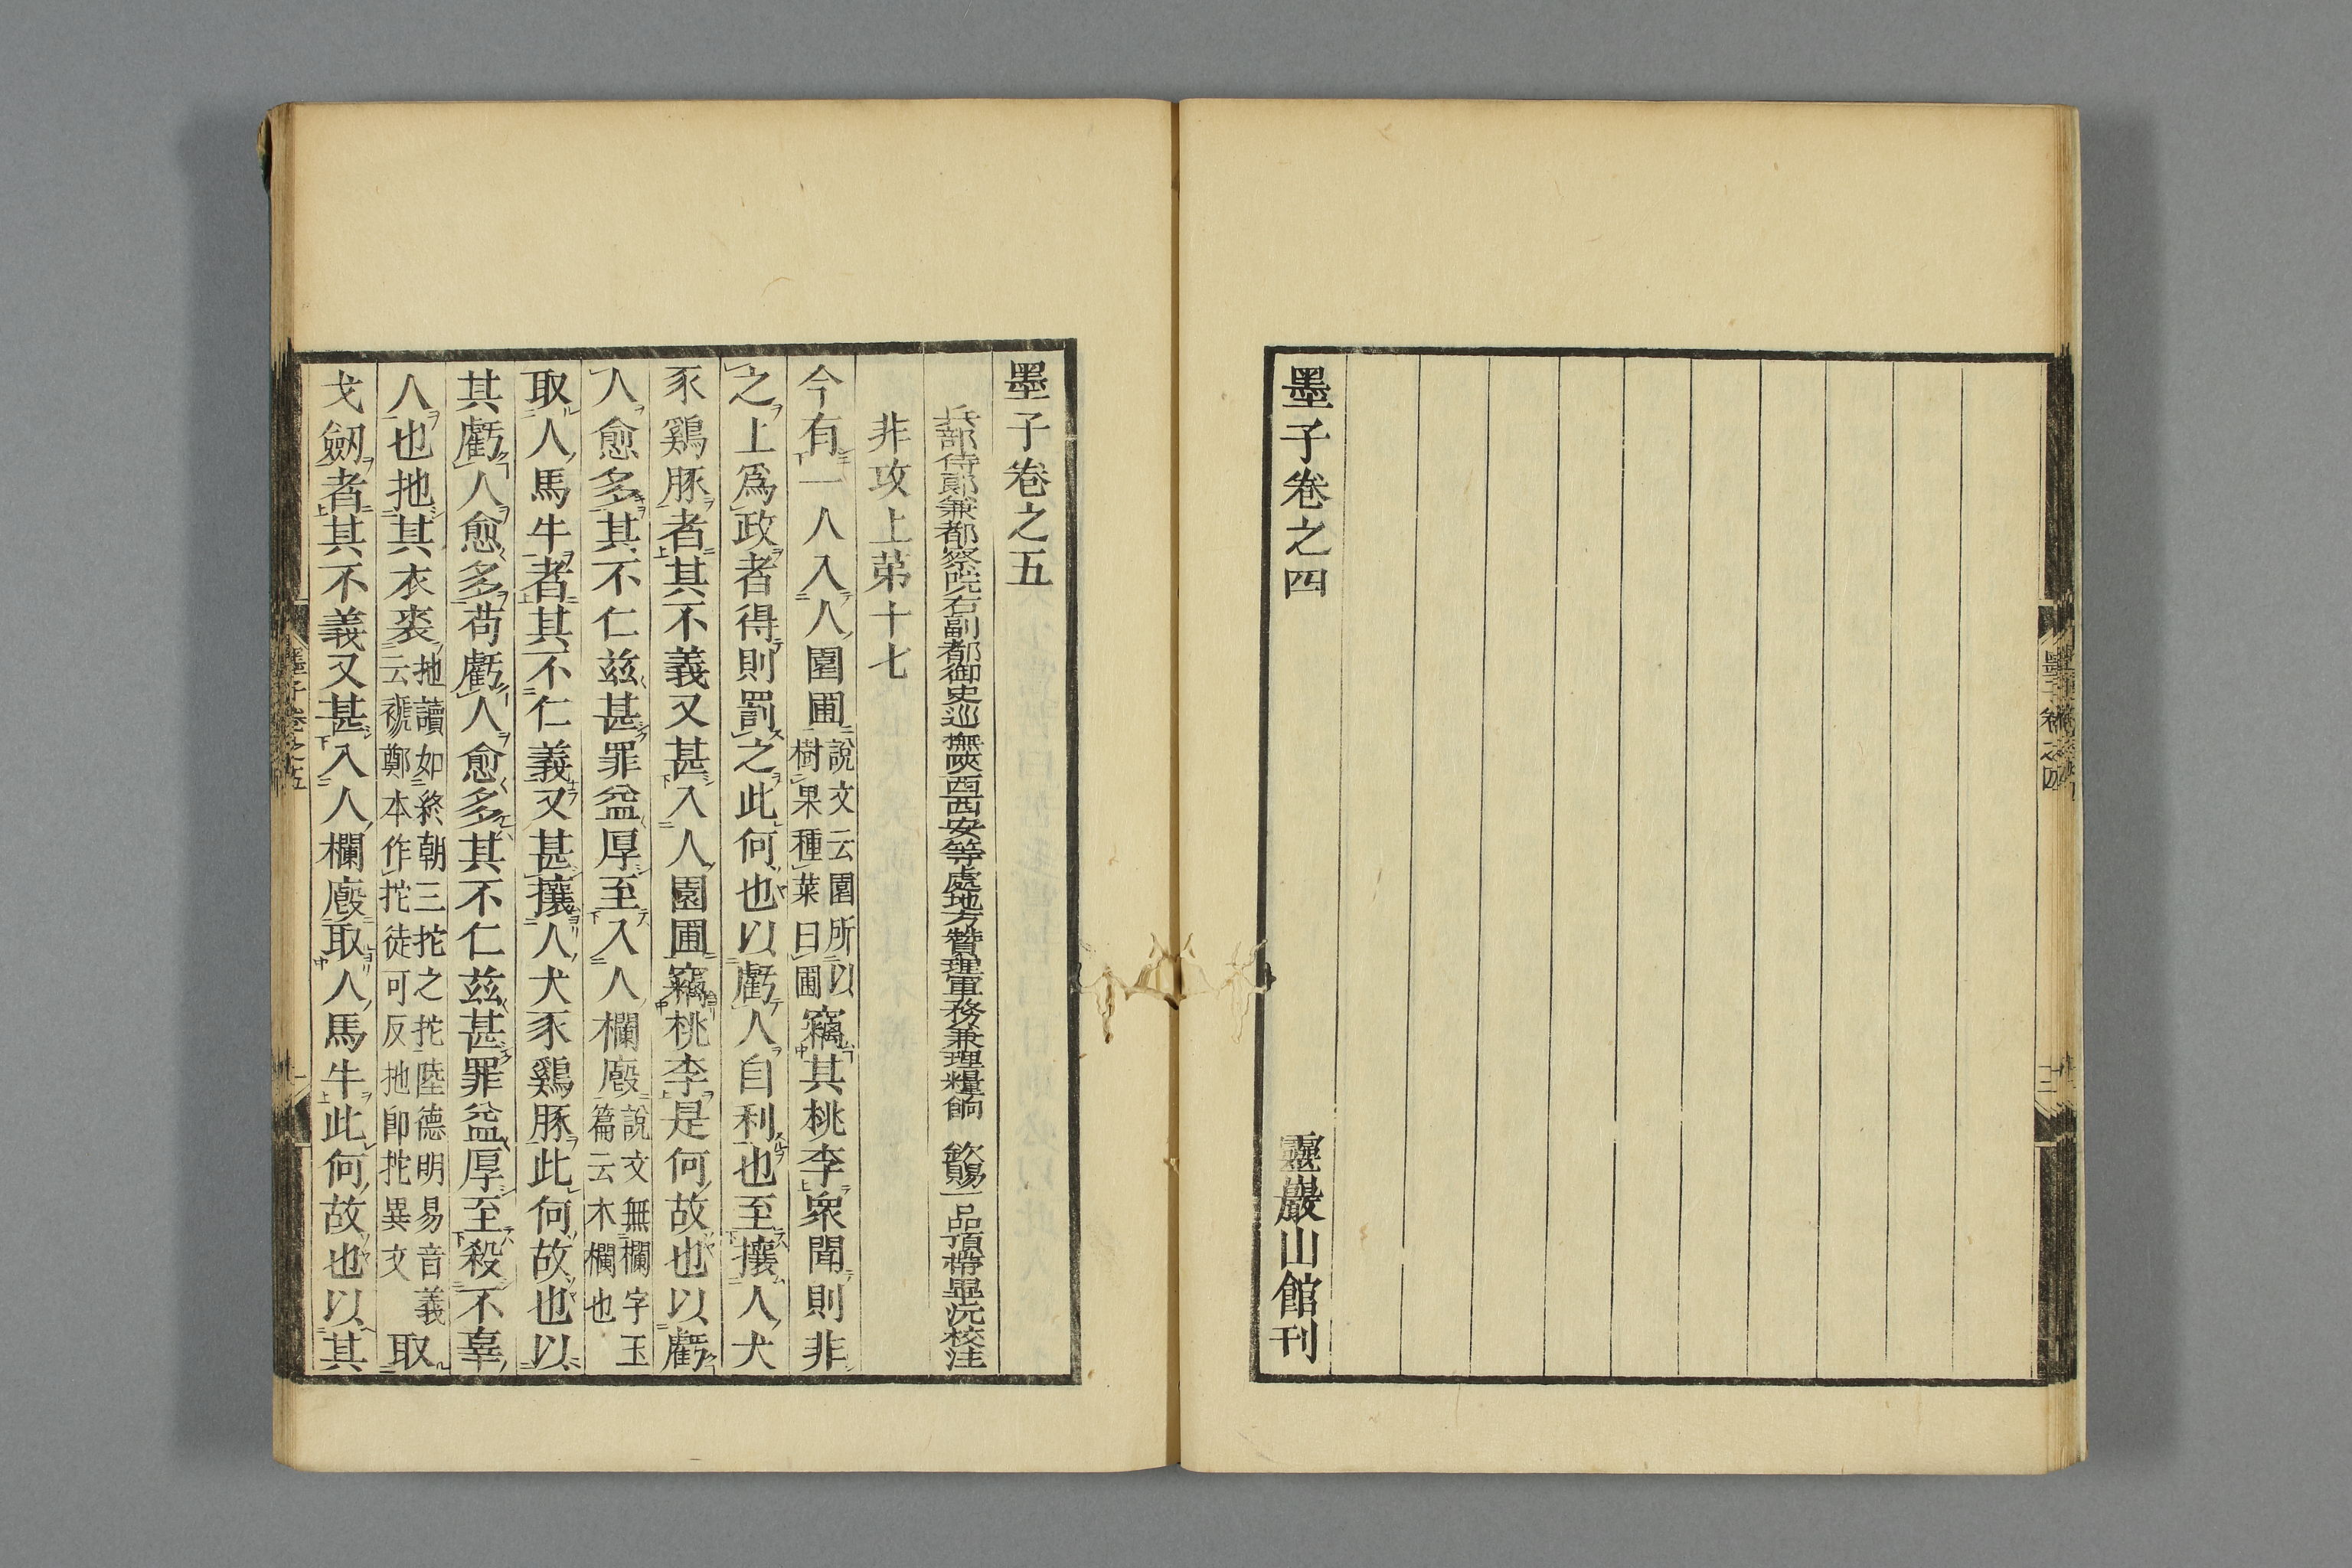 墨子卷之四 靈巖山館刊
墨子卷之四
墨子卷之五
兵部侍郞兼都察院右副都御史巡撫陝西西安等處地方贊理軍務兼理糧餉 欽賜一品頂帶畢沅校注
非攻上苐十七
今有一人入人園圃說文云園所以樹果種菜曰圃竊其桃李衆聞則非
之上爲政者得則罰之此何也以虧人自利也至攘人犬
豕鷄豚者其不義又甚入人園圃竊桃李是何故也以虧
人愈多其不仁兹甚罪益厚至入人欄廏說文無欄字玉篇云木欄也
取人馬牛者其不仁義又甚攘人犬豕鷄豚此何故也以
其虧人愈多苟虧人愈多其不仁兹甚罪益厚至殺不辜
人也扡其衣裘扡讀如終朝三拕之拕陸德明易音義云褫鄭本作拕徒可反扡卽拕異文取
戈劒者其不義又甚入人欄廏取人馬牛此何故也以其
墨子卷之五